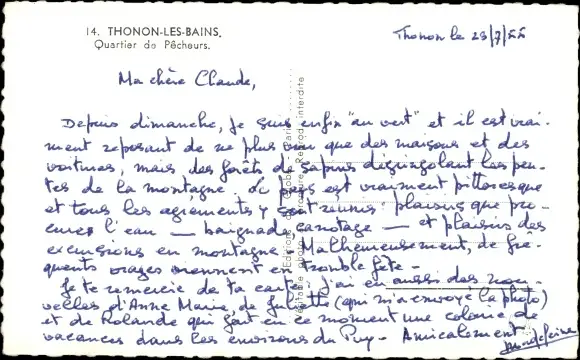 14. THONON-LES-BAINS.
Quartier de Pêcheurs.
Thonon le 29/7/55
Ma chère Claude,
Depuis dimanche, je suis enfin "au vert" et il est vrai-
ment reposant de ne plus voir que des maisons et des
voitures, mais des forêts de sapins dégringolant les pen-
tes de la montagne. Le pays est vraiment pittoresque
et tous les agréments y sont réunis : plaisirs que pro-
cure l'eau — baignade, canotage — et plaisirs des
excursions en montagne. Malheureusement, de fré-
quents orages viennent en trouble fête -
Je te remercie de ta carte. J'ai eu aussi des nou-
velles d'Anne Marie, de Juliette (qui m'a envoyé la photo)
et de Rolande qui fait en ce moment une colonie de
vacances dans les environs du Puy. Amicalement